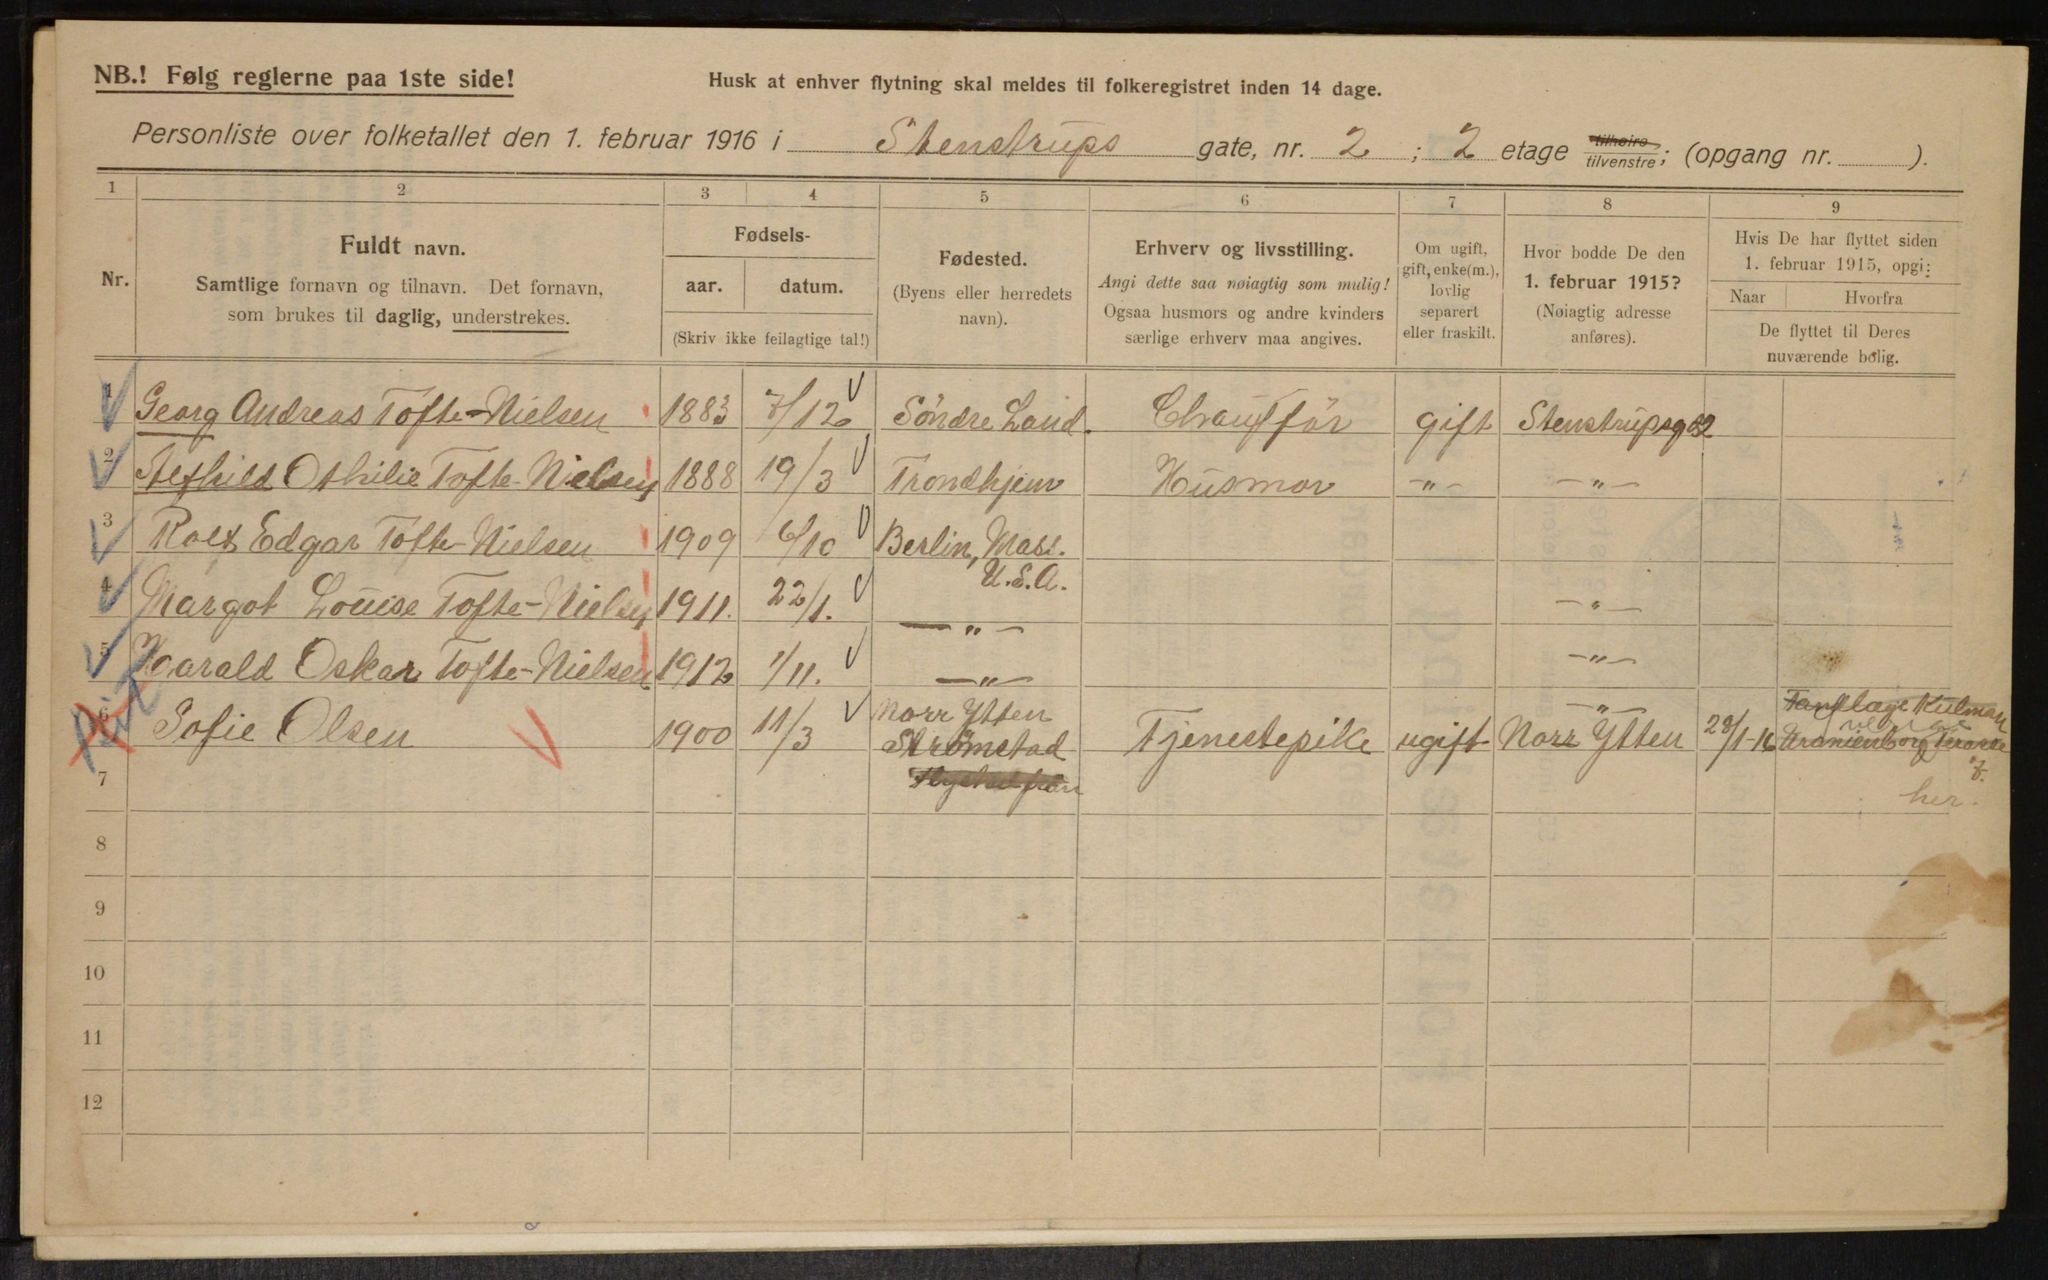 NB.! Følg reglerne paa 1ste side!
Husk at enhver flytning skal meldes til folkeregistret inden 14 dage.
Personliste over folketallet den 1. februar 1916 i Stenstrups gate, nr. 2 ; 2 etage tilhøire tilvenstre; (opgang nr. ).
1 2 3 4 5 6 7 8 9
Nr.
Fuldt navn.
Samtlige fornavn og tilnavn. Det fornavn,
som brukes til daglig, understrekes.
Fødsels-
aar. datum.
(Skriv ikke feilagtige tal!)
Fødested.
(Byens eller herredets
navn).
Erhverv og livsstilling.
Angi dette saa nøiagtig som mulig!
Ogsaa husmors og andre kvinders
særlige erhverv maa angives.
Om ugift,
gift, enke(m.),
lovlig
separert
eller fraskilt.
Hvor bodde De den
1. februar 1915?
(Nøiagtig adresse
anføres).
Hvis De har flyttet siden
1. februar 1915, opgi:
Naar Hvorfra
De flyttet til Deres
nuværende bolig.
1 Georg Andreas Tofte-Nielsen 1883 7/12 Söndre Land. Chaufför gift Stenstrupsg 2
2 Alfhild Othilie Tofte-Nielsen 1888 19/3 Trondhjem Husmor -"- -"-
3 Rolf Edgar Tofte-Nielsen 1909 6/10 Berlin, Mass.
U.S.A.
4 Margot Louise Tofte-Nielsen 1911. 22/1. -"- -"-
5 Harald Oskar Tofte-Nielsen 1912 1/11. -"- -"-
6 Sofie Olsen 1900 11/3 Norr Ytten
Strömstad Tjenestepike ugift Norr Ytten 28/1-16 Tandlæge Kulman
Uranienborg
her.
7
8
9
10
11
12